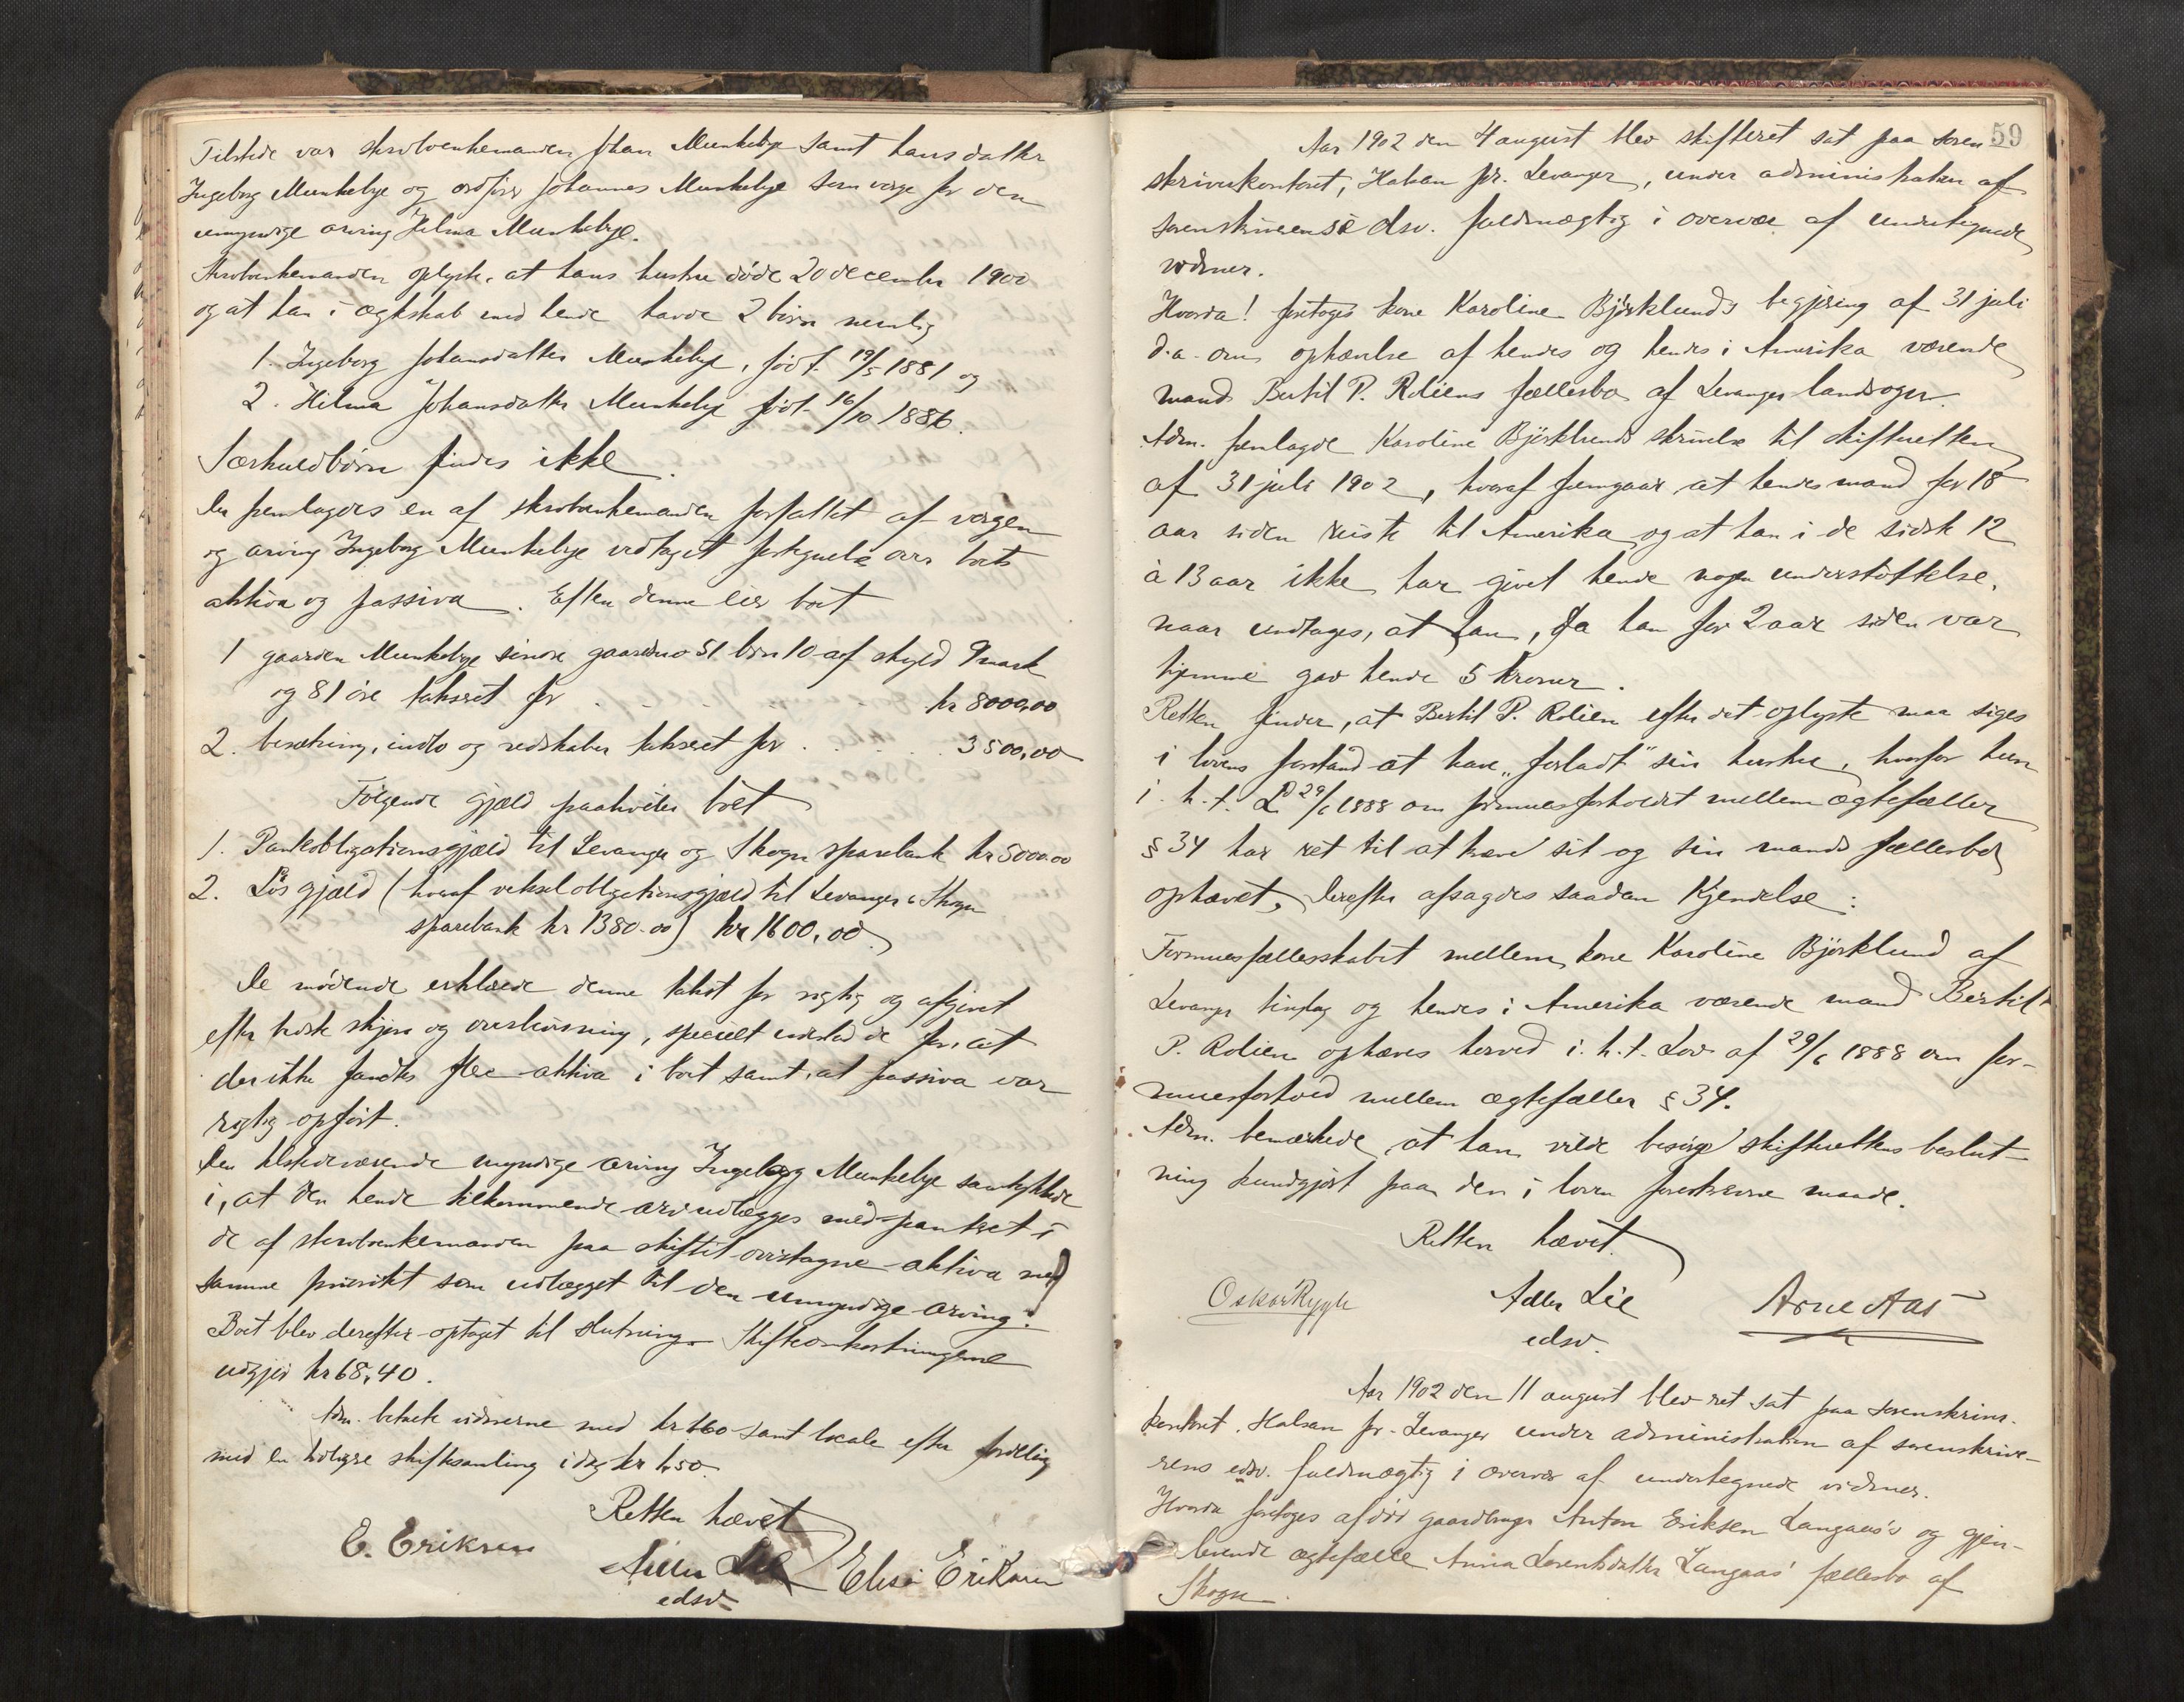 Tilstede var skrotbenkemanden Johan Munkebye samt hans datter
Ingeborg Munkebye og ordfører Johannes Munkebye som verge for den
umyndige arving Hilma Munkebye.
oplyste, at hans hustru døde 20 december 1900
og at han i ægteskab med hende havde 2 børn nemlig
1. Ingeborg Johansdatter Munkebye, født 19/5 1881 og
2. Hilma Johansdatter Munkebye født 16/10 1886.
Særkuldbørn findes ikke.
Der fremlagdes en af forfattet af vergen
og arving Ingeborg Munkebye vedtaget fortegnelse over boets
aktiva og passiva. Efter denne eier boet
1 gaarden Munkebye søndre gaardsno 51 brn 10 af skyld 9 mark
og 81 øre takseret for . . . . . kr 8000,00
2. besætning, indbo og redskaber takseret for . . . . . 3500,00
Følgende gjæld paahviler boet
1. Panteobligationsgjæld til Levanger og Skogn sparebank kr 5000.00
2. Løs gjæld (hvoraf vekselobligationsgjæld til Levanger & Skogn
sparebank kr 1380.00) kr 1600,00.
De mødende erklærede denne takst for rigtig og afgivet
efter bedste skjøn og overbevisning, specielt indestod de for, at
der ikke fandtes flere aktiva i boet samt, at passiva var
rigtig opført.
Den tilstedeværende myndige arving Ingeborg Munkebye samtykkede
i, at den hende tilkommende arv udlægges med panteret i
de af paa skiftet overtagne aktiva med
samme prioritet som udlægget til den umyndige arving.
Boet blev derefter optaget til slutning. Skifteomkostningerne
udgjør kr 68,40.
Adm. betalte vidnerne med kr 1.60 samt lokale efter fordeling
med en tidligere skiftesamling idag kr 1,50.
Retten hævet
E. Eriksen
Adler Lie Elise Eriksen
edsv.
59
Aar 1902 den 4 august blev skifteret sat paa soren-
skriverkontoret, Halsan pr. Levanger, under administration af
sorenskriverens edsv. fuldmægtig i overvær af undertegnede
vidner.
Hvorda! foretoges kone Karoline Bjørklunds begjæring af 31 juli
d.a. om ophævelse af hendes og hendes i Amerika værende
mand Bertil P. Roliens fællesbo af Levanger landsogn.
Adm. fremlagde Karoline Bjørklunds skrivelse til skifteretten
af 31 juli 1902, hvoraf fremgaar at hendes mand for 18
aar siden reiste til Amerika og at han i de sidste 12
à 13 aar ikke har givet hende nogen understøttelse,
naar undtages, at han, da han for 2 aar siden var
hjemme gav hende 5 kroner.
Retten finder, at Bertil P. Rolien efter det oplyste maa siges
i lovens forstand at have „forladt" sin hustru, hvorfor hun
i. h. t. L 29/6 1888 om formuesforholdet mellem ægtefæller
§ 34 har ret til at kræve sit og sin mands fællesbo
ophævet, derefter afsagdes saadan Kjendelse:
Formuesfællesskabet mellem kone Karoline Bjørklund af
Levanger tinglag og hendes i Amerika værende mand Bertil
P. Rolien ophæves herved i. h. t. Lov af 29/6 1888 om for-
muesforhold mellem ægtefæller § 34.
Adm. bemærkede, at han vilde besørge skifterettens beslut-
ning kundgjort paa den i loven foreskrevne maade.
Retten hævet.
Oskar Rygh Adler Lie Arne Aas
edsv.
Aar 1902 den 11 august blev ret sat paa sorenskriver-
kontoret, Halsan pr. Levanger under administration af sorenskrive-
rens edsv. fuldmægtig i overvær af undertegnede vidner.
Hvorda foretoges afdød gaardbruger Anton Eriksen Langaas's og gjen-
levende ægtefælle Anna Lorentsdatter Langaas' fællesbo af
Skogn.